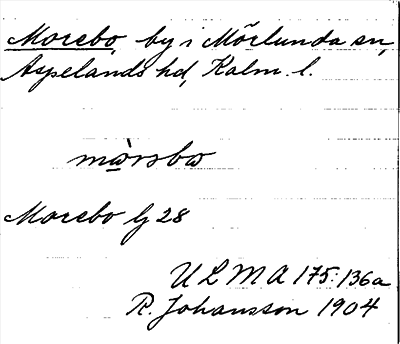 Morebo, by i Mörlunda sn,
Aspelands hd, Kalm. l.
Morebo lj 28
ULMA 175:136a
R. Johansson 1904